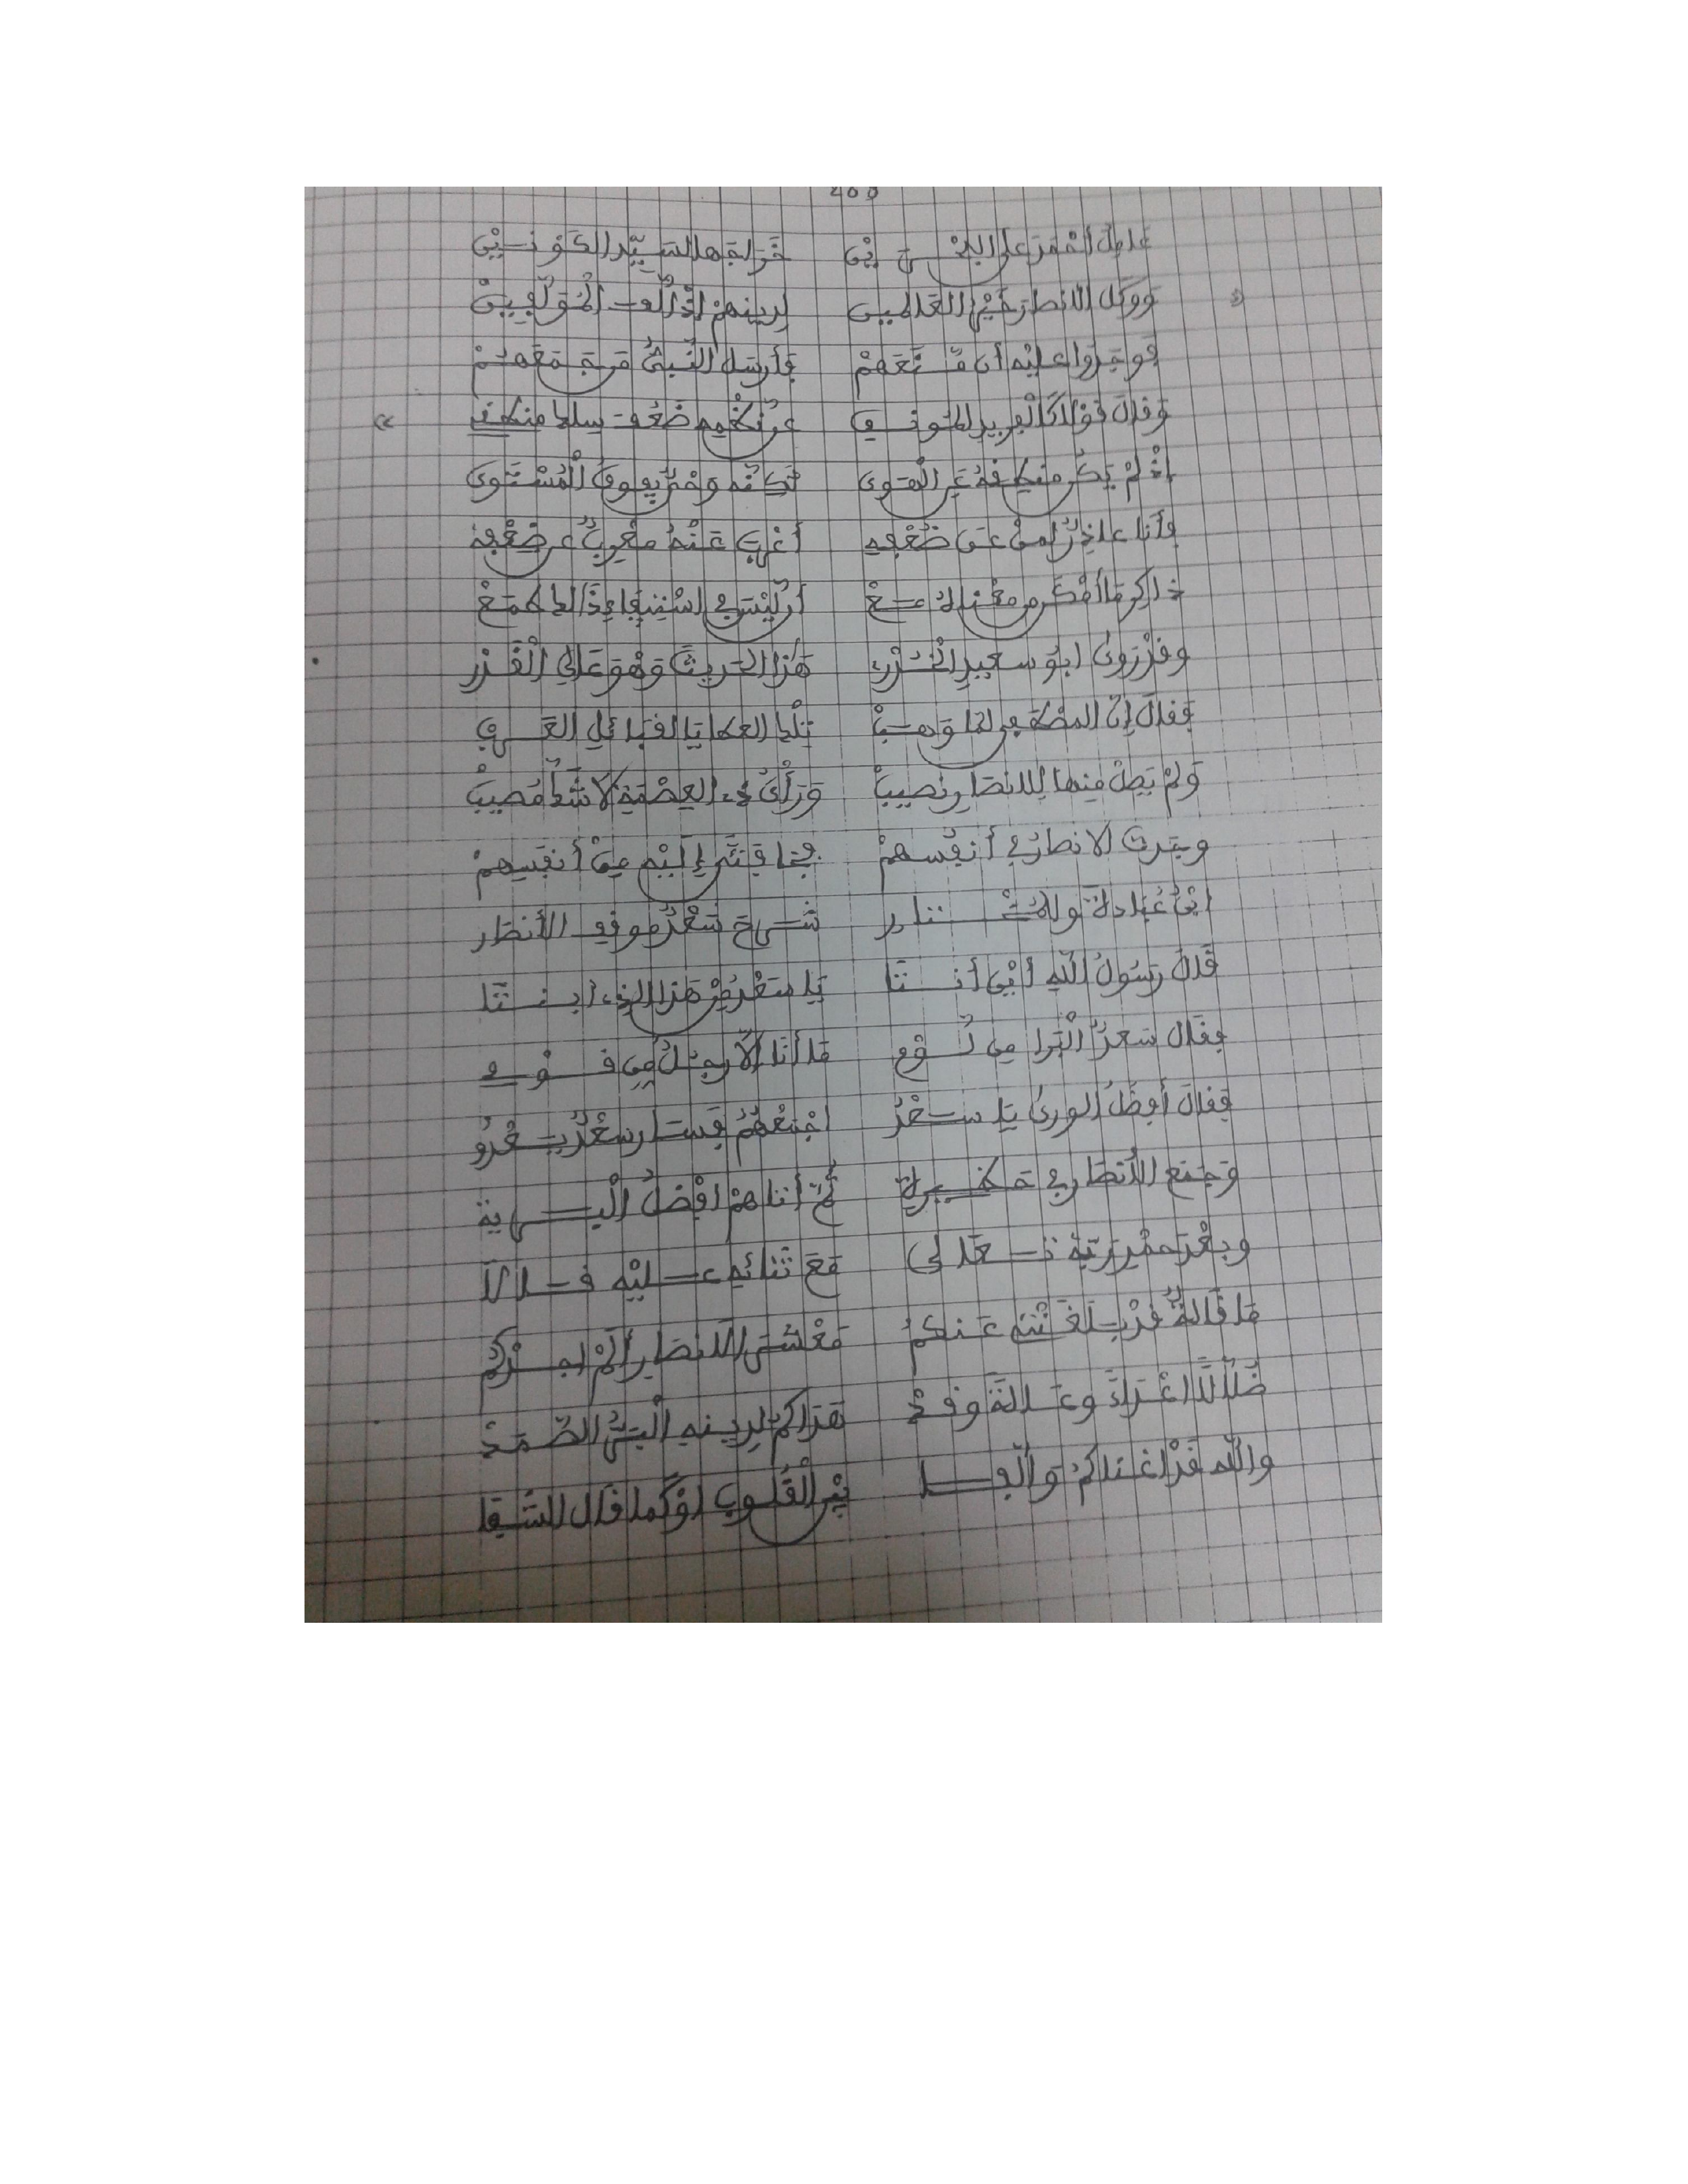 عامل أحمد على البحرين خوله ها السيد الكونين
ووكل الانصار خير العالمين لدينهم إذ ألف المؤلفين
فوجدوا عليه أن منعهم فأرسل النبي من جمعهم
وقال قولا كالفريد المونق عن نظمه ضعف سلك منطق
إذ لم يكن منك قوى تكنه وقد يقوى المستوى
وأنا عاذر لمن عن ضعفه أغرب عنه معرب عن ضعفه
ذاكر ما أمكن من معناه مع أن ليس في استيفاء ذاك مطمع
وقد روى ابو سعيد الخدري هذا الحديث وهو عالي القدر
فقال إن المصطفى لما وهب تلك العطايا لقبائل العرب
ولم يصل منها للانصار نصيب ورأى ذي العصمة لا شك مصيب
وجدت الانصار في أنفسهم فجا فتى إليه من أنفسهم
ابن عبادة شرح سعد موقف الأنصار
قال رسول الله أين أنتا يا سعد من هذا الذي أبنتا
فقال سعد ما أنا إلا رجل من قومي
فقال أفضل الورى يا سعد اجمعهم فسار سعد يعدو
وجمع الأنصار في حظيرة ثم أتاهم افضل البرية
وبعد حمد ربه تعالى مع ثنائه عليه قالا
ما قالة قد بلغتني عنكم معشر الانصار ألم اجدكم
ضلالا اعداء وعالة وقد هداكم لدينه البر الصمد
والله قد اغناكم وألفا بين القلوب او كما قال الشفا